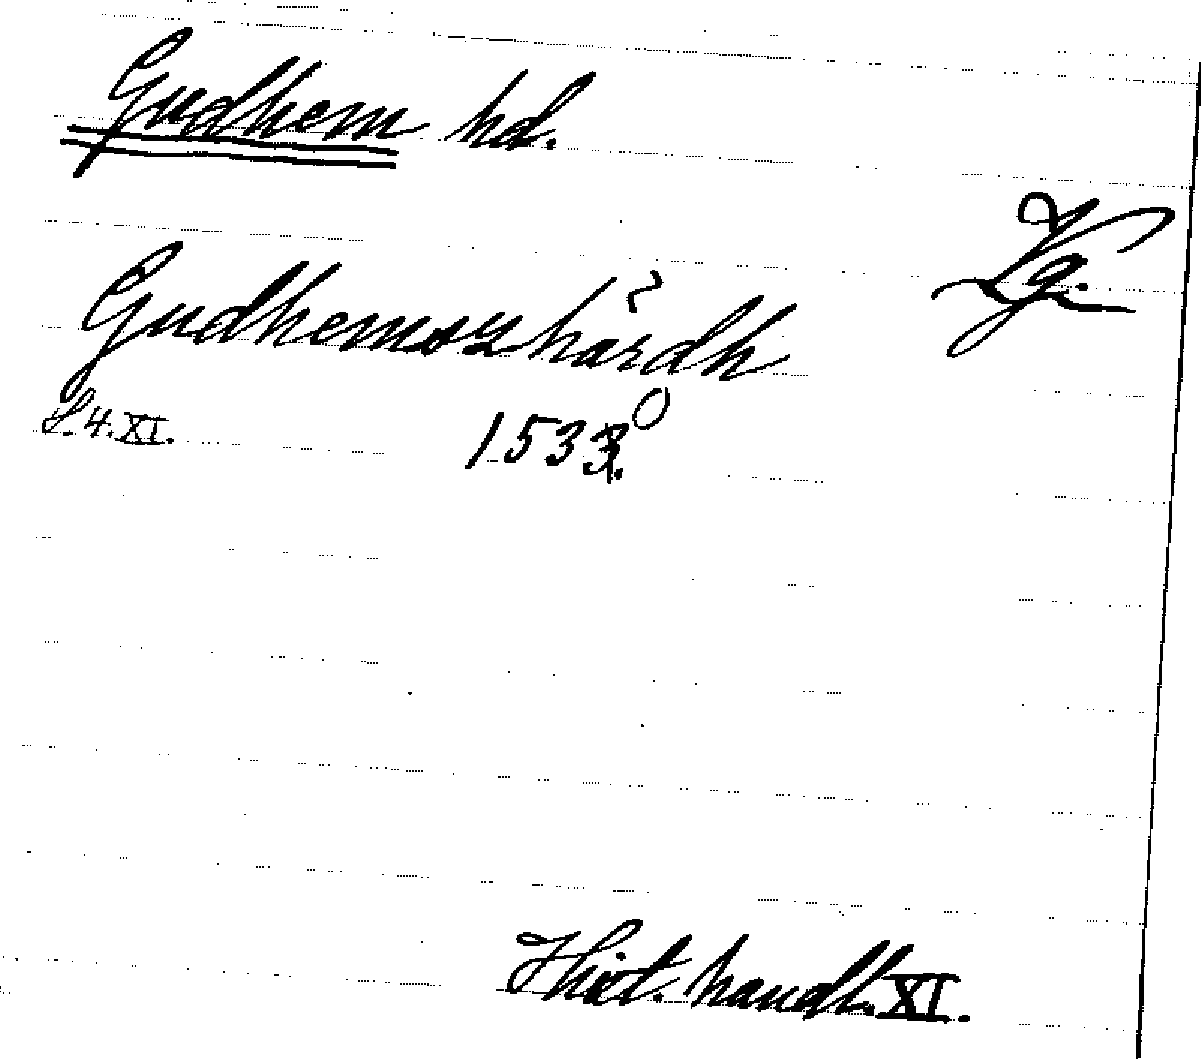 Gudhem hd.
Vg.
Gudhemszhårdh
S. 4. XI.
1533.
Hist. handl. XI.